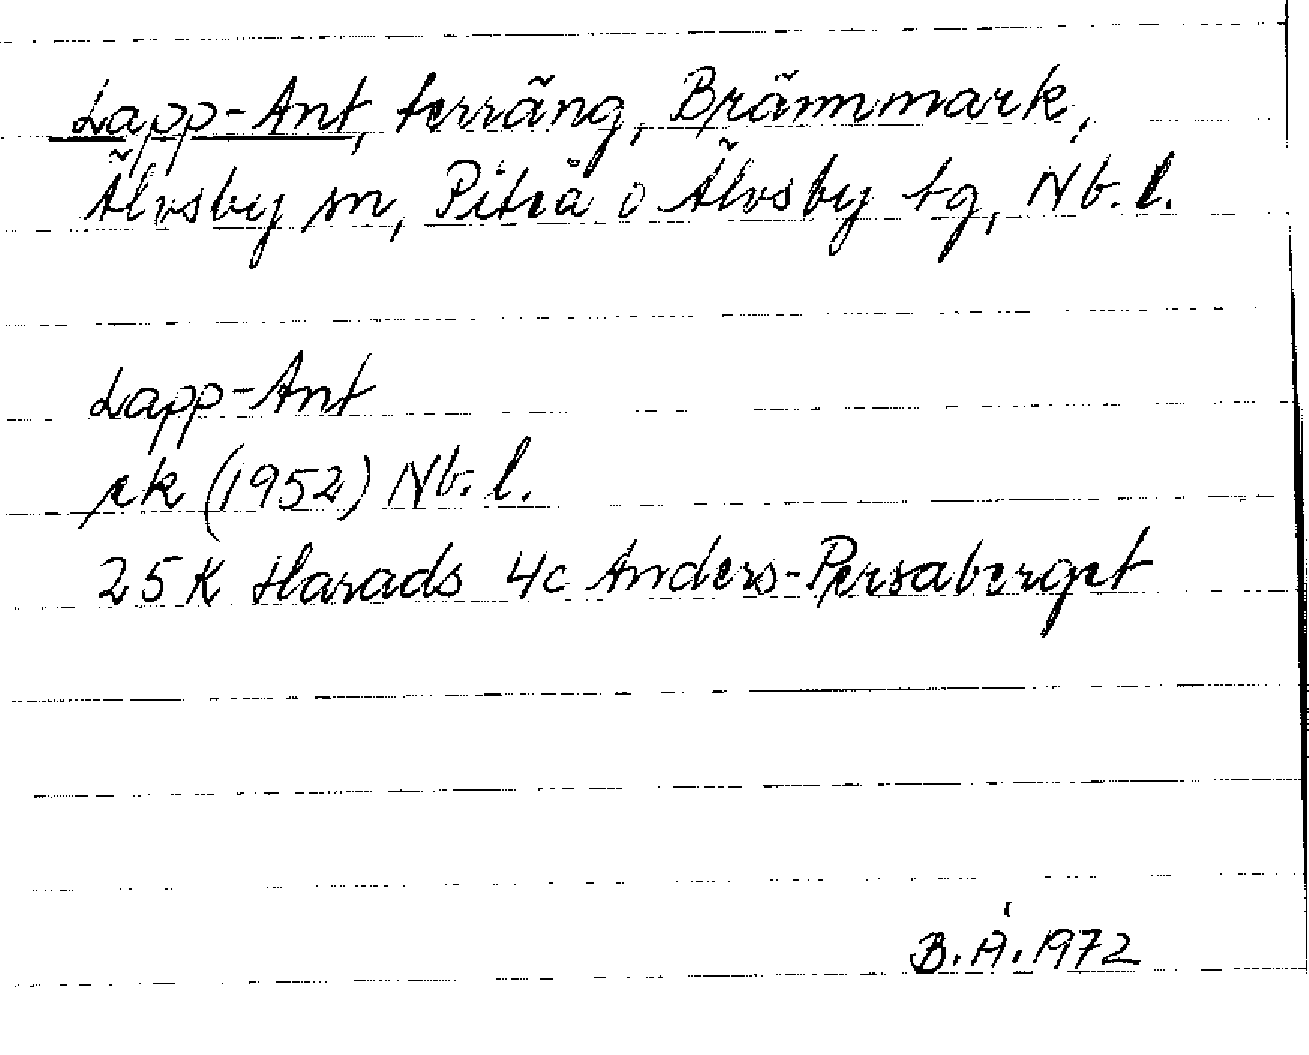 Lapp-Ant, terräng, Brännmark,
Älvsby sn, Piteå o Älvsby tg, Nb. l.
Lapp-Ant
ek (1952) Nb. l.
25K Harads 4c Anders-Persaberget
B.Å. 1972